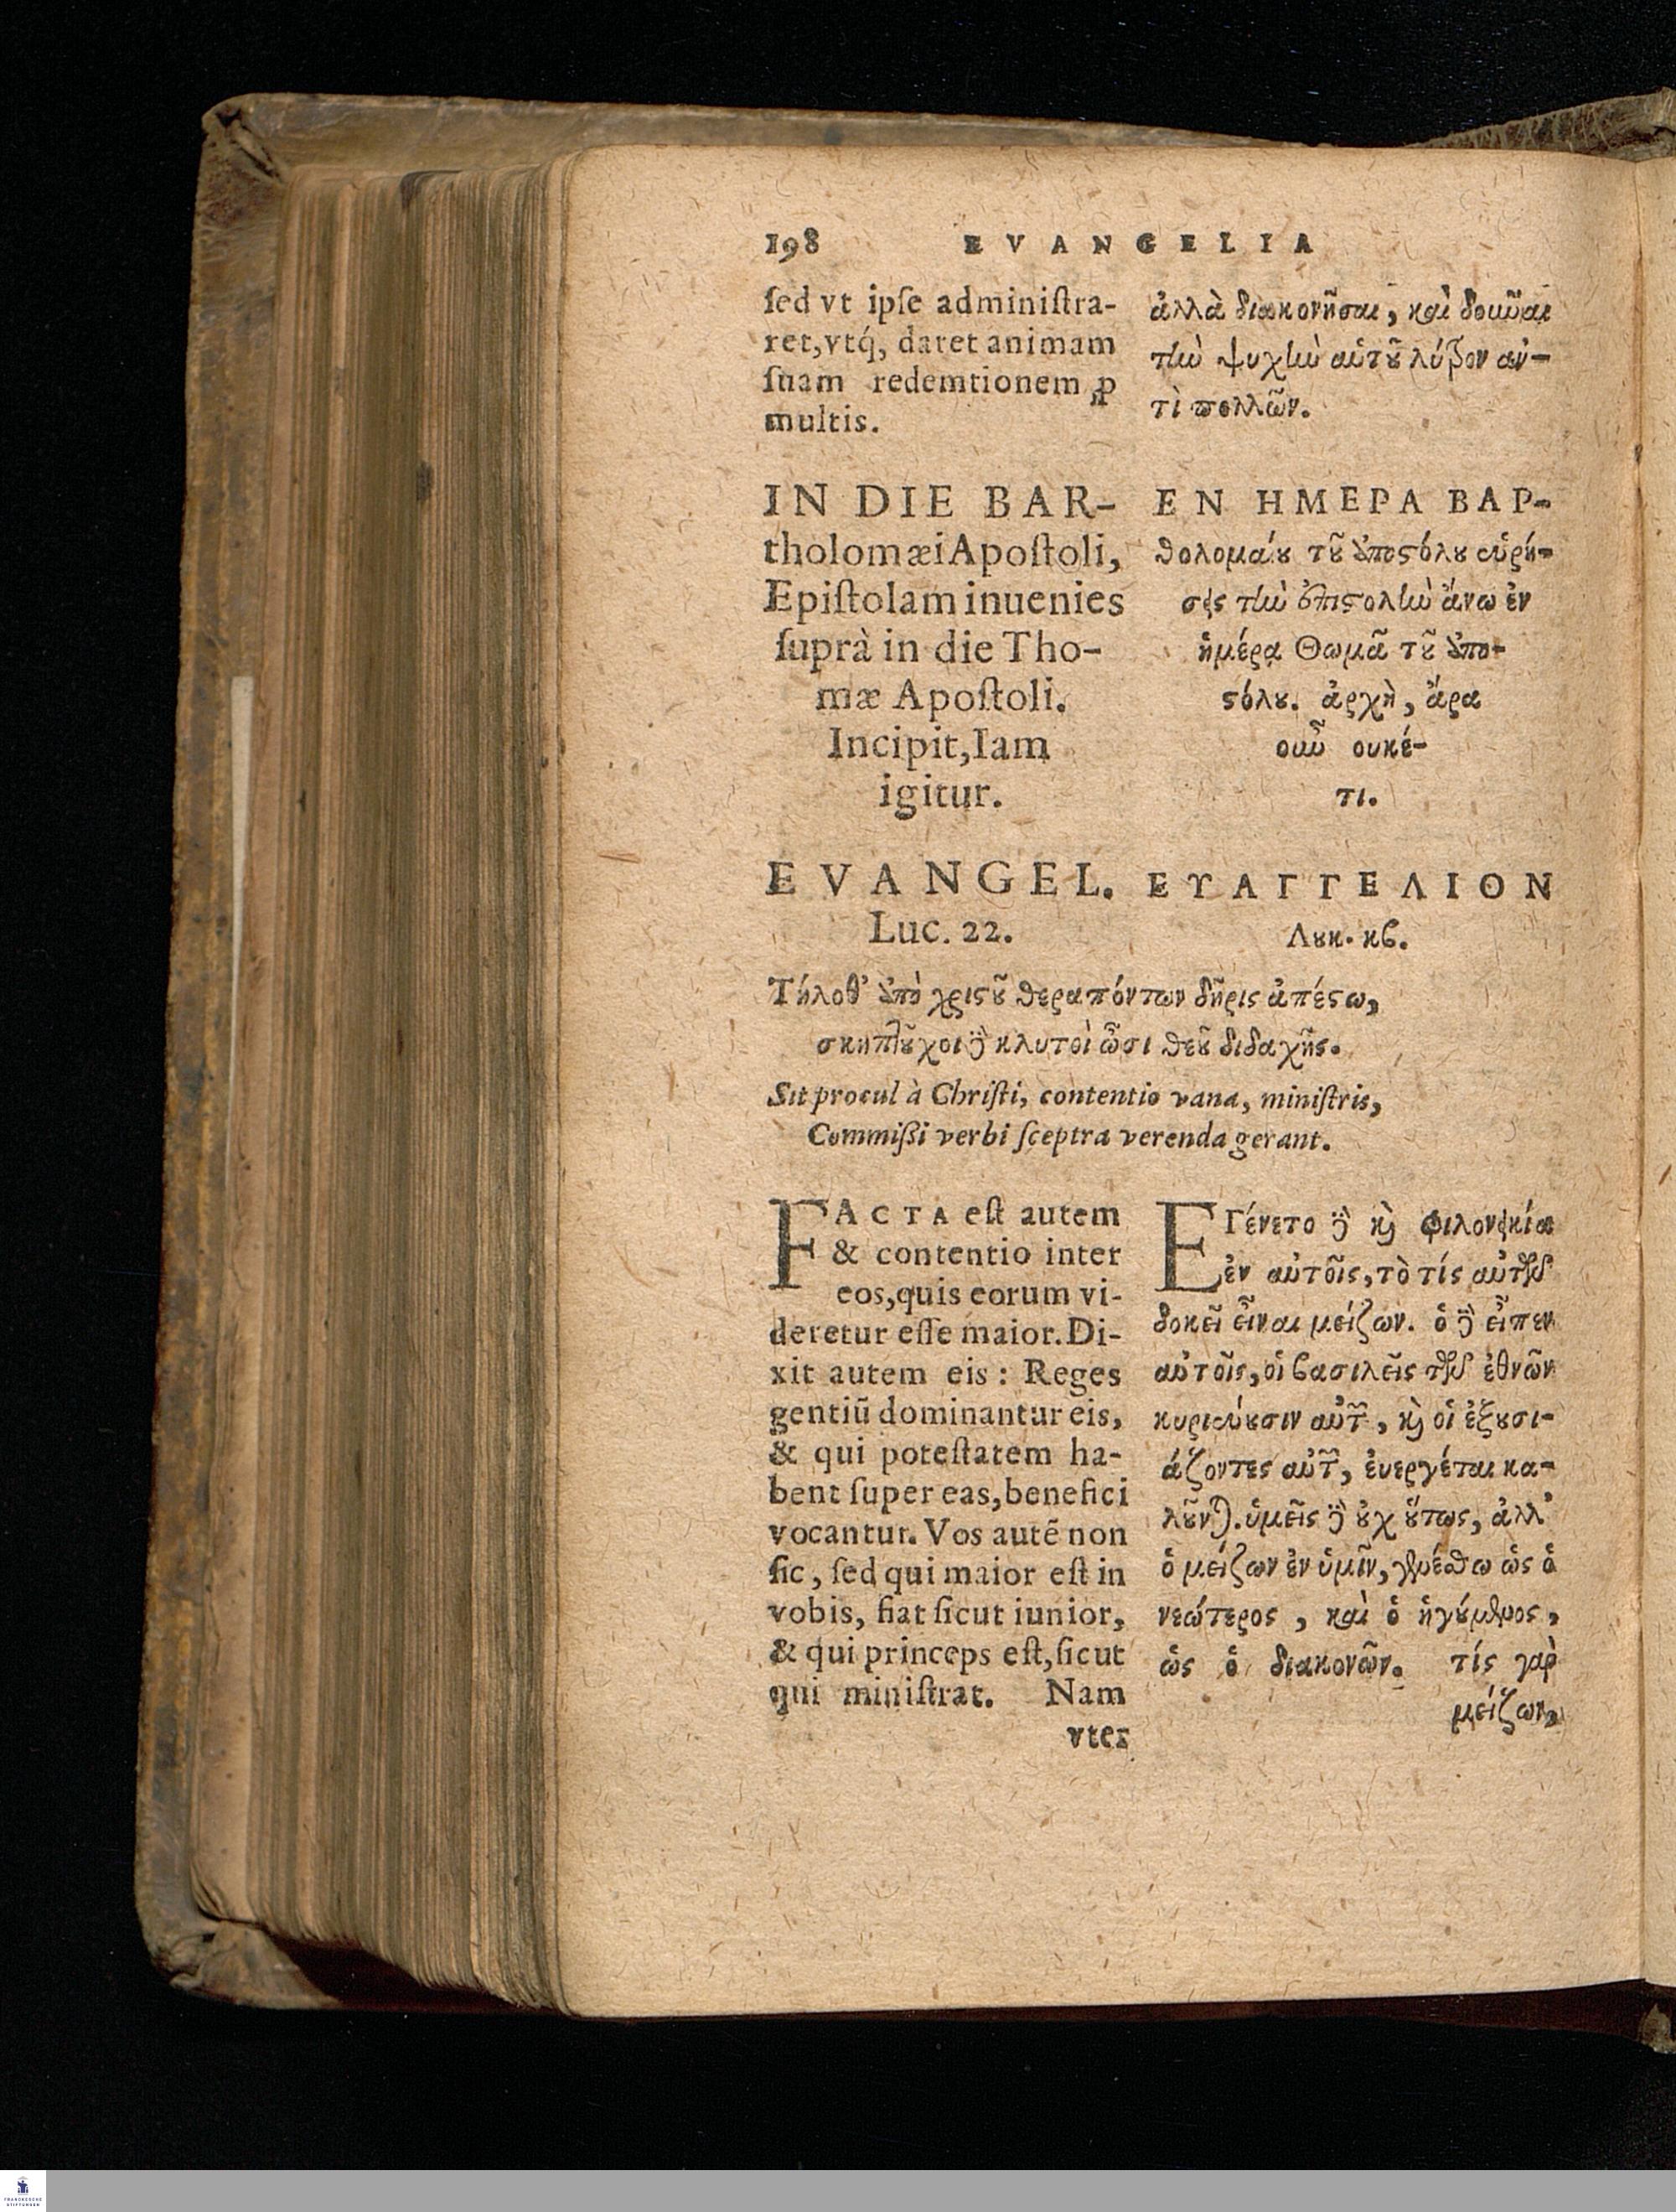 198 EVANGELIA
ſed vt ipſe adminiſtra-
ret,vtq́, daret animam
ſuam redemtionem ꝓ
multis.
IN DIE BAR-
tholomæi Apoſtoli,
Epiſtolam inuenies
ſuprà in die Tho-
mæ Apoſtoli.
Incipit,Iam
igitur.
EVANGEL.
Luc. 22.
ἀλλὰ διακονῆσαι, καὶ δοῦναι
τὴν ψυχὴν αὑτοῦ λύτρον ἀν-
τὶ πολλῶν.
ΕΝ ΗΜΕΡΑ ΒΑΡ-
θολομαίου τοῦ ἀποστόλου εὑρή-
σεις τὴν ἐπιστολὴν ἄνω ἐν
ἡμέρᾳ Θωμᾶ τοῦ ἀπο-
στόλου. ἀρχὴ, ἄρα
οὖν ουκέ-
τι.
ΕΥΑΓΓΕΛΙΟΝ
Λουκ. κβ.
Τήλοθ’ ἀπὸ χριστοῦ θεραπόντων δῆρις ἀπέστω,
σκηπτοῦχοι δὲ κλυτοὶ ὦσι θεοῦ διδαχῆς.
Sit procul à Chriſti, contentio vana, miniſtris,
Commißi verbi ſceptra verenda gerant.
FACTA eſt autem
& contentio inter
eos,quis eorum vi-
deretur eſſe maior.Di-
xit autem eis : Reges
gentiũ dominantur eis,
& qui poteſtatem ha-
bent ſuper eas,benefici
vocantur. Vos autẽ non
ſic, ſed qui maior eſt in
vobis, fiat ſicut iunior,
& qui princeps eſt,ſicut
qui miniſtrat. Nam
vter
ΕΓένετο δὲ καὶ φιλονεικία
ἐν αὐτοῖς,τὸ τίς αὐτῶν
δοκεῖ εἶναι μείζων. ὁ δὲ εἶπεν
αὐτοῖς,οἱ βασιλεῖς τῶν ἐθνῶν
κυριεύουσιν αὐτῶν, καὶ οἱ ἐξουσι-
άζοντες αὐτῶν, ἐυεργέται κα-
λοῦνται.ὑμεῖς δὲ οὐχ οὕτως, ἀλλ’
ὁ μείζων ἐν ὑμῖν, γενέσθω ὡς ὁ
νεώτερος, καὶ ὁ ἡγούμενος,
ὡς ὁ διακονῶν. τίς γὰρ
μείζων,
FRANCKESCHE
STIFTUNGEN